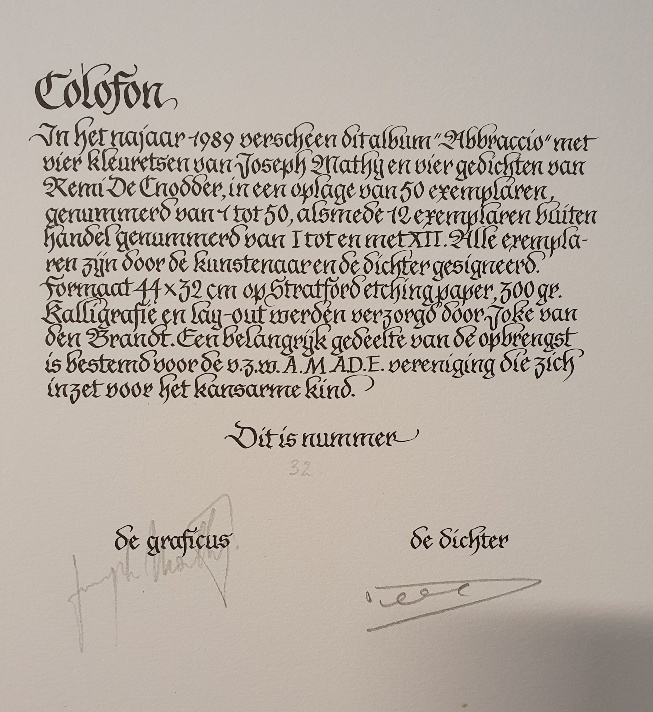 Colofon
In het najaar 1989 verscheen dit album "Abbraccio" met
vier kleuretsen van Joseph Mathy en vier gedichten van
Remi De Cnodder, in een oplage van 50 exemplaren,
genummerd van 1 tot 50, alsmede 12 exemplaren buiten
handel genummerd van I tot en met XII. Alle exempla-
ren zijn door de kunstenaar en de dichter gesigneerd.
Formaat 44 x 32 cm op Stratford etching paper, 300 gr.
Kalligrafie en lay-out werden verzorgd door Joke van
den Brandt. Een belangrijk gedeelte van de opbrengst
is bestemd voor de v.z.w. A.M.A.D.E. vereniging die zich
inzet voor het kansarme kind.
Dit is nummer
32
de graficus de dichter
Joseph Mathy